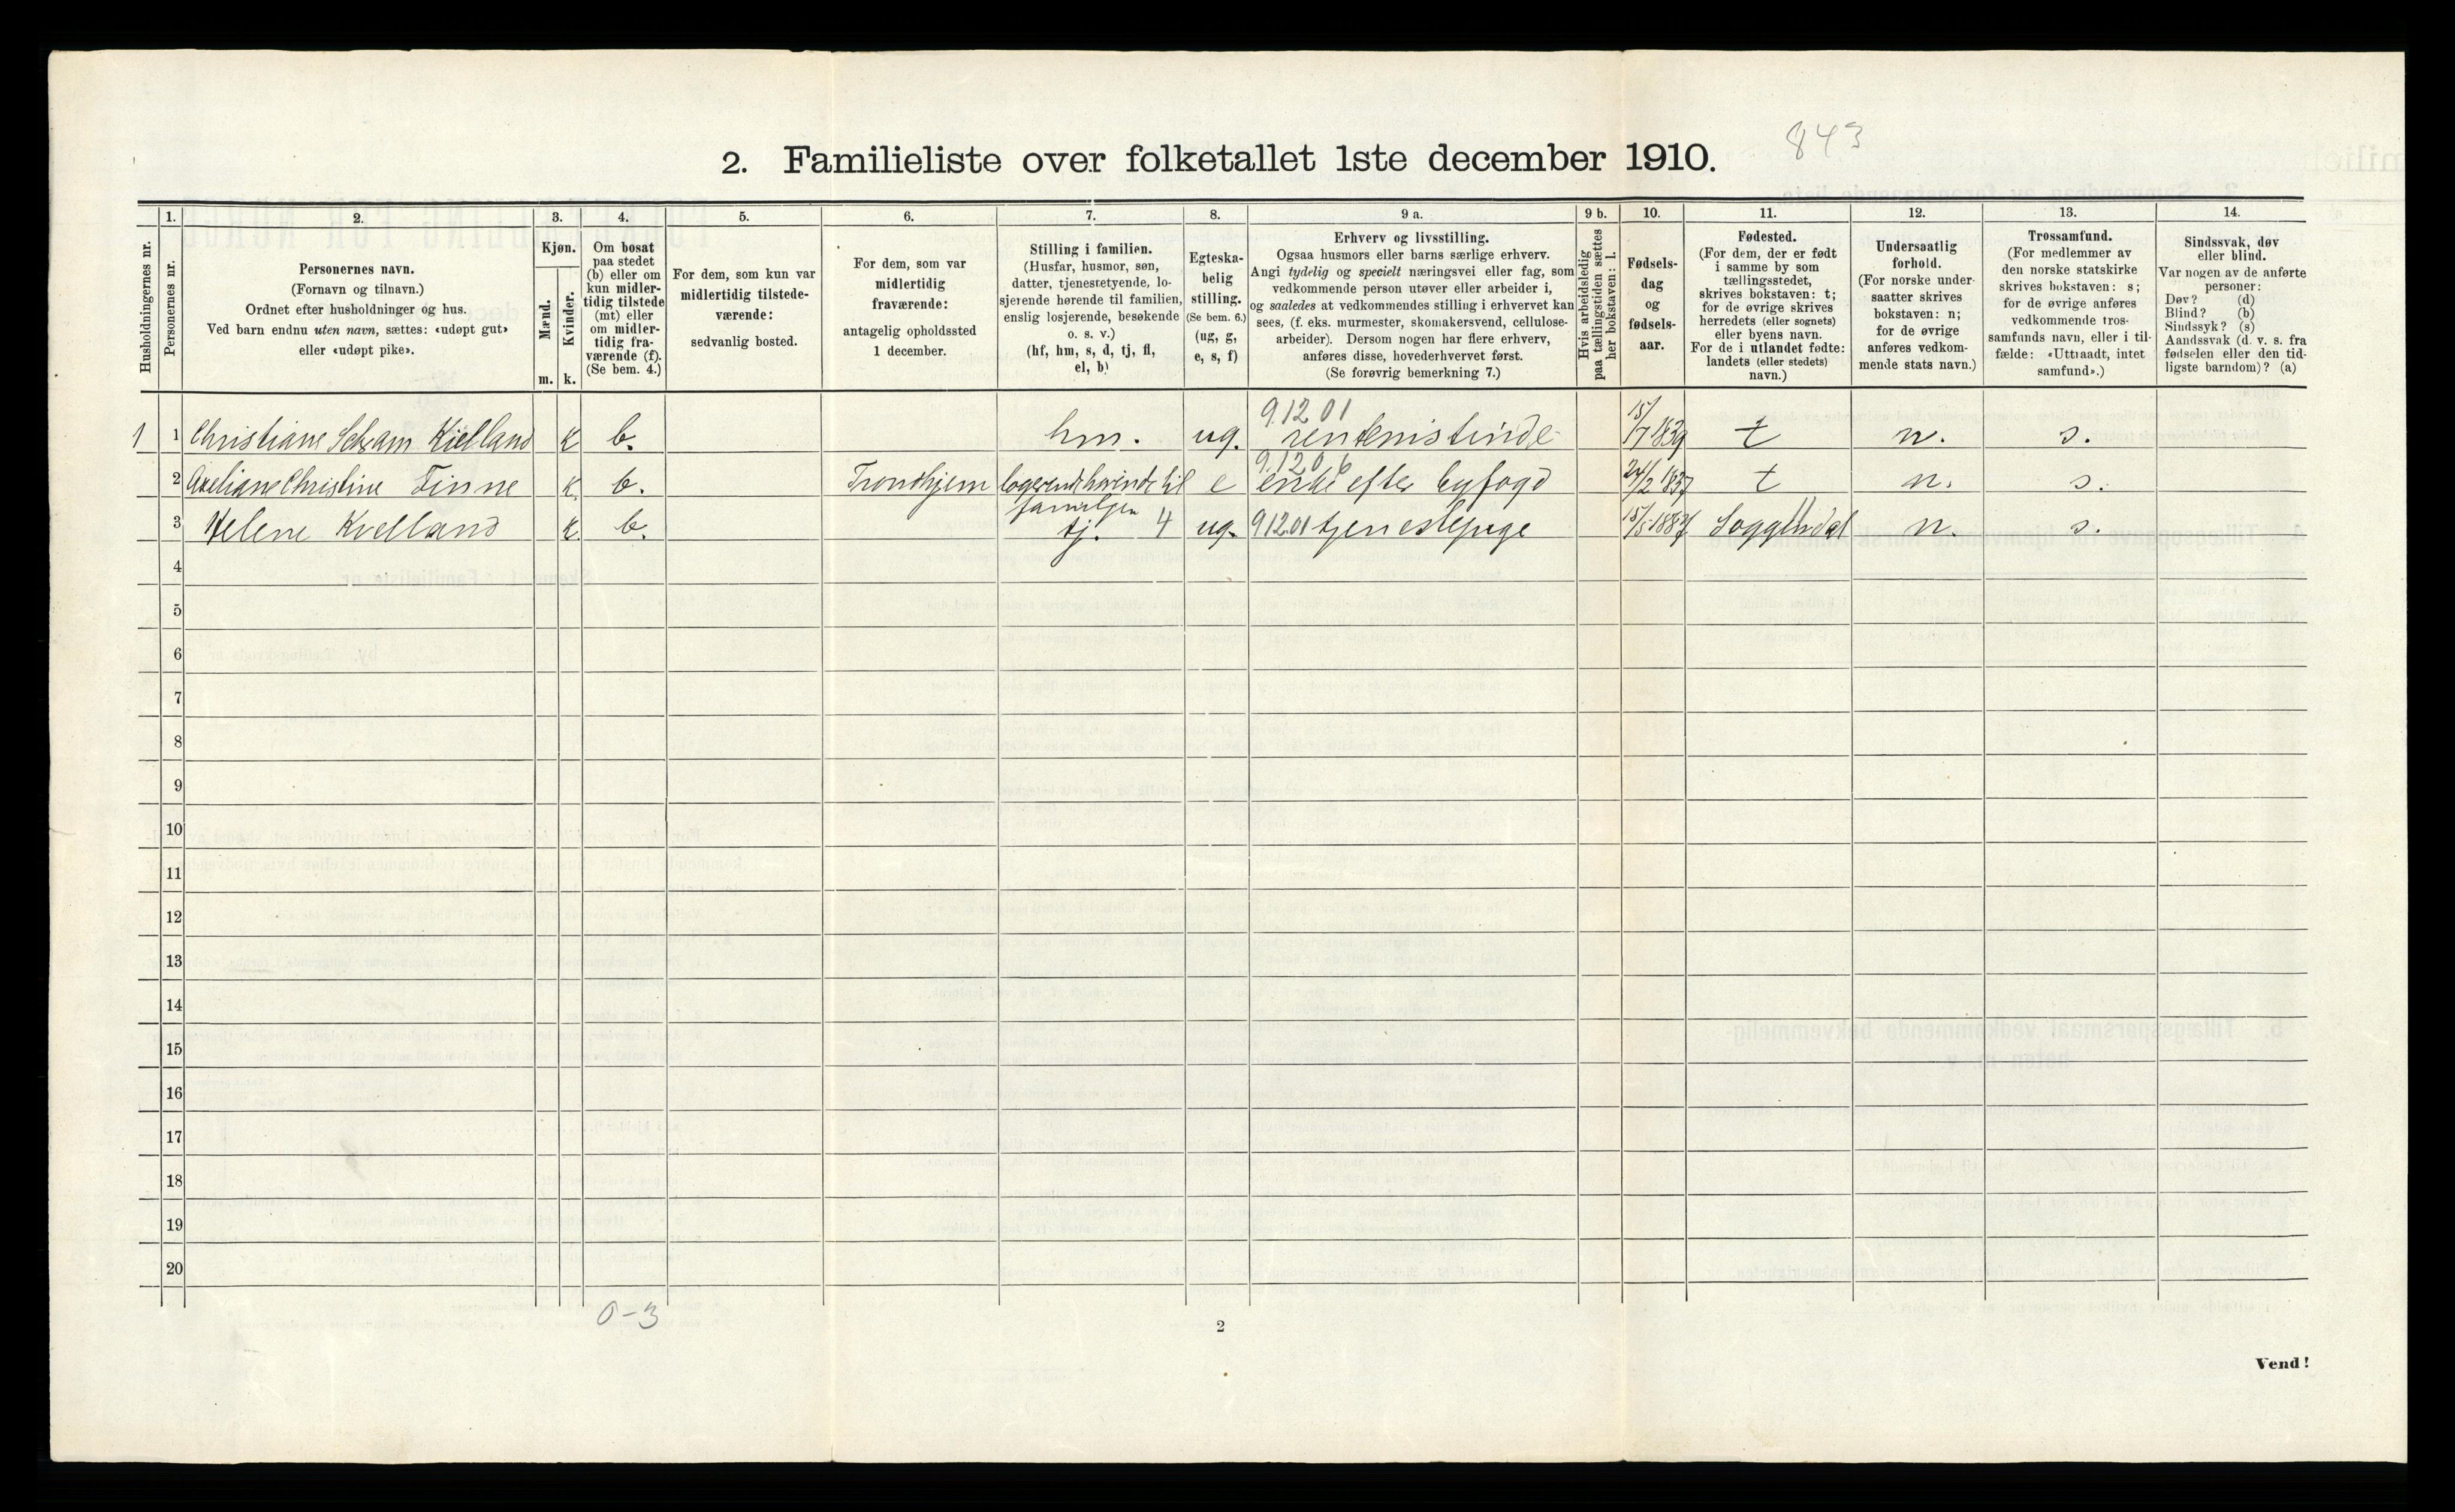 843
2. Familieliste over folketallet 1ste december 1910.
Husholdningernes nr.
1.
Personernes nr.
2.
Personernes navn.
(Fornavn og tilnavn.)
Ordnet efter husholdninger og hus.
Ved barn endnu uten navn, sættes: «udøpt gut»
eller «udøpt pike».
3.
Kjøn.
Mænd.
Kvinder.
m. k.
4.
Om bosat
paa stedet
(b) eller om
kun midler-
tidig tilstede
(mt) eller
om midler-
tidig fra-
værende (f).
(Se bem. 4.)
5.
For dem, som kun var
midlertidig tilstede-
værende:
sedvanlig bosted.
6.
For dem, som var
midlertidig
fraværende:
antagelig opholdssted
1 december.
7.
Stilling i familien.
(Husfar, husmor, søn,
datter, tjenestetyende, lo-
sjerende hørende til familien,
enslig losjerende, besøkende
o. s. v.)
(hf, hm, s, d, tj, fl,
el, b)
8.
Egteska-
belig
stilling.
(Se bem. 6.)
(ug, g,
e, s, f)
9 a.
Erhverv og livsstilling.
Ogsaa husmors eller barns særlige erhverv.
Angi tydelig og specielt næringsvei eller fag, som
vedkommende person utøver eller arbeider i,
og saaledes at vedkommendes stilling i erhvervet kan
sees, (f. eks. murmester, skomakersvend, cellulose-
arbeider). Dersom nogen har flere erhverv,
anføres disse, hovederhvervet først.
(Se forøvrig bemerkning 7.)
9 b.
Hvis arbeidsledig
paa tællingstiden sættes
her bokstaven: l.
10.
Fødsels-
dag
og
fødsels-
aar.
11.
Fødested.
(For dem, der er født
i samme by som
tællingsstedet,
skrives bokstaven: t;
for de øvrige skrives
herredets (eller sognets)
eller byens navn.
For de i utlandet fødte:
landets (eller stedets)
navn.)
12.
Undersaatlig
forhold.
(For norske under-
saatter skrives
bokstaven: n;
for de øvrige
anføres vedkom-
mende stats navn.)
13.
Trossamfund.
(For medlemmer av
den norske statskirke
skrives bokstaven: s;
for de øvrige anføres
vedkommende tros-
samfunds navn, eller i til-
fælde: «Uttraadt, intet
samfund».)
14.
Sindssvak, døv
eller blind.
Var nogen av de anførte
personer:
Døv? (d)
Blind? (b)
Sindssyk? (s)
Aandssvak (d. v. s. fra
fødselen eller den tid-
ligste barndom)? (a)
9.12 01
1 1 Christiane Schram Kielland k b. hm. ug. rentenistinde 15/7 1839 t n. s.
9.12 0 6
2 Axeliane Christine Finne k. b. Trondhjem logerende hørende til familien e enke efter byfogd 24/2 1837 t n. s.
3 Helene Kvelland k. b. tj. 4 ug. 912.01 tjenestepige 15/5-1887 Soggendal n. s.
4
5
6
7
8
9
10
11
12
13
14
15
16
17
18
19
20
0-3
2
Vend!